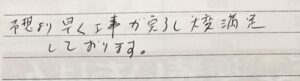 予想より早く工事が完了し大変満足
しております。